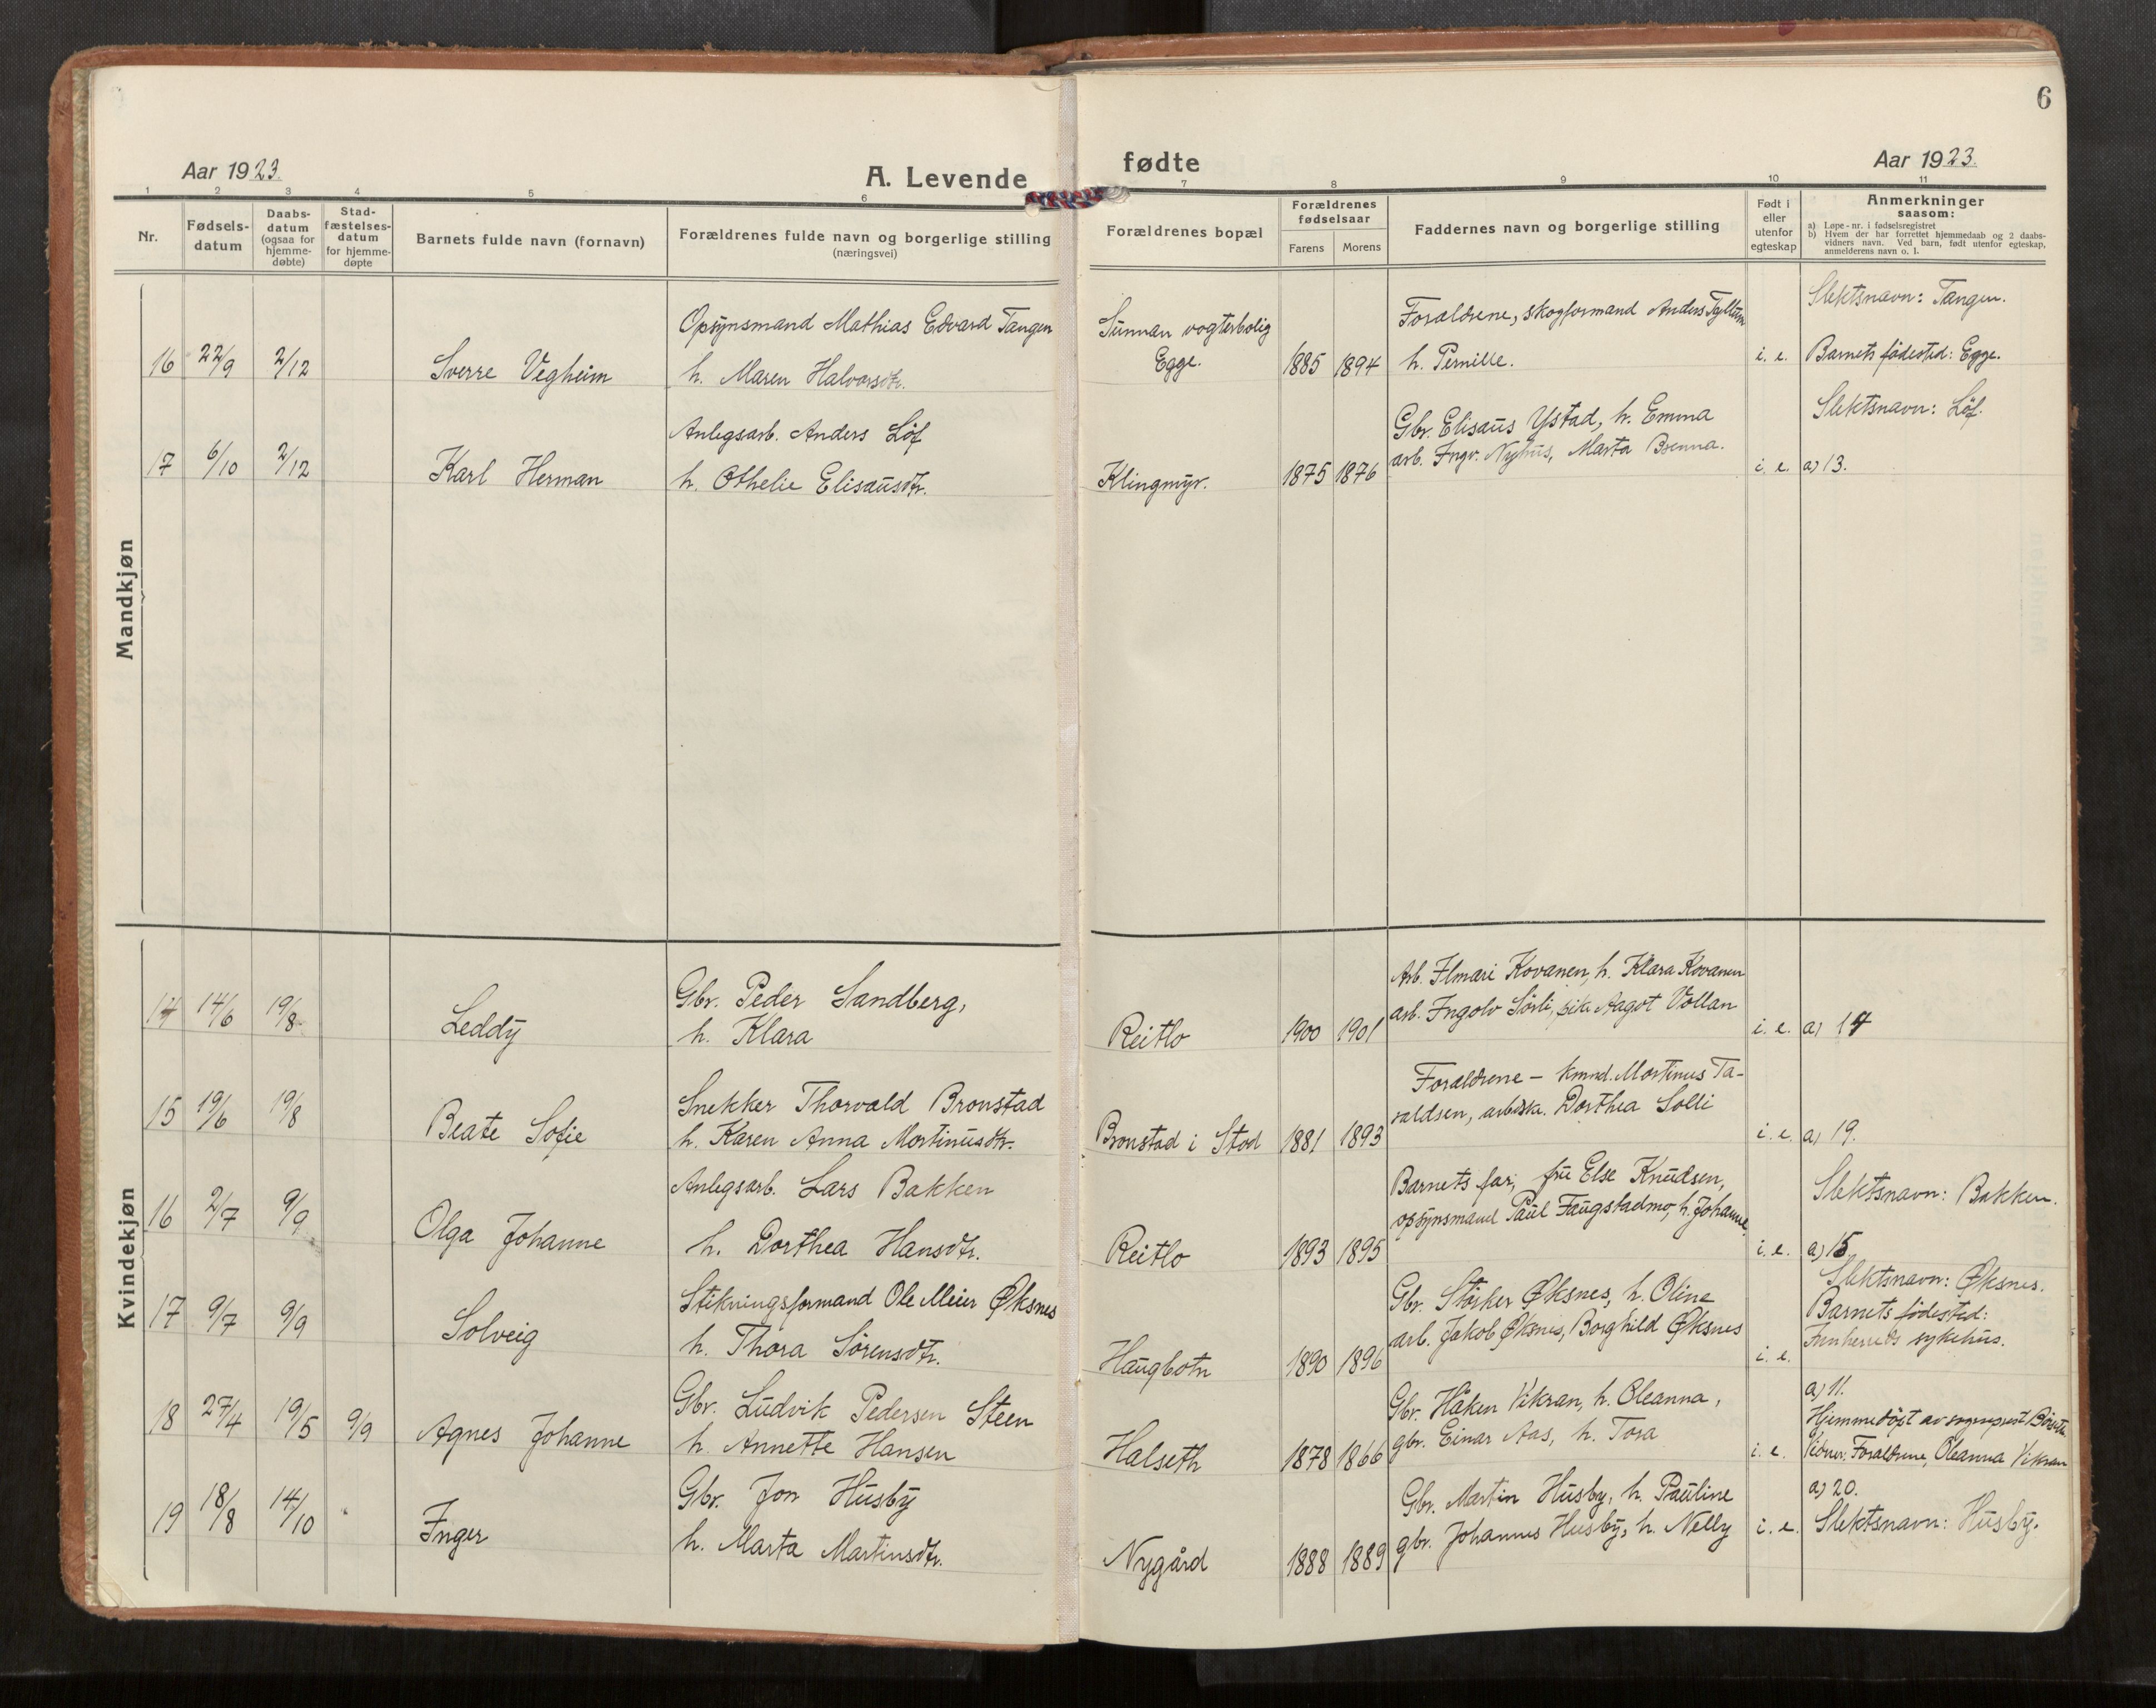 6
Aar 1923.
A. Levende
fødte
Aar 1923.
1 2 3 4 5 6 7 8 9 10 11
Nr.
Fødsels-
datum
Daabs-
datum
(ogsaa for
hjemme-
døbte)
Stad-
fæstelses-
datum
for hjemme-
døpte
Barnets fulde navn (fornavn)
Forældrenes fulde navn og borgerlige stilling
(næringsvei)
Forældrenes bopæl
Forældrenes
fødselsaar
Farens
Morens
Faddernes navn og borgerlige stilling
Født i
eller
utenfor
egteskap
Anmerkninger
saasom:
a) Løpe-nr. i fødselsregistret
b) Hvem der har forrettet hjemmedaab og 2 daabs-
vidners navn. Ved barn, født utenfor egteskap,
anmelderens navn o. l.
Mandkjøn
16 22/9 2/12
Sverre Vegheim
Opsynsmand Mathias Edvard Tangen
h. Maren Halvorsdtr.
Sunnan vogterbolig
Egge.
1885 1894
Forældrene, skogformand Anders
h. Pernille.
i. e.
Slektsnavn: Tangen.
Barnets fødested: Egge.
17 6/10 2/12
Karl Herman
Anlegsarb. Anders Löf
h. Othelie Elisæusdtr.
Klingmyr.
1875 1876
Gbr. Elisæus Ystad, h. Emma
arb. Ingv. Nyhus, Marta Brenna.
i. e.
Slektsnavn: Löf.
a) 13.
Kvindekjøn
14 14/6 19/8
Leddy
Gbr. Peder Sandberg,
h. Klara
Reitlo
1900 1901
Arb. Ilmari Kovanen, h. Klara Kovanen
arb. Ingolv Sørli, pike Aagot Vollan
i. e.
a) 14
15 19/6 19/8
Beate Sofie
Snekker Thorvald Bronstad
h. Karen Anna Martinusdtr.
Bronstad i Stod
1881 1893
Forældrene - kmnd. Martinus Ta-
raldsen, Dorthea Solli
i. e.
a) 19.
16 2/7 9/9
Olga Johanne
Anlegsarb. Lars Bakken
h. Dorthea Hansdtr.
Reitlo
1893 1895
Barnets far, frue Else Knudsen,
opsynsmand Paul Faugstadmo, h. Johanne.
i. e.
Slektsnavn: Bakken.
a) 15
17 9/7 9/9
Solveig
Stikningsformand Ole Meier Øksnes
h. Thora Sørensdtr.
Haugbotn
1890 1896
Gbr. Störker Øksnes, h. Oline
arb. Jakob Øksnes, Borghild Øksnes
i. e.
Slektsnavn: Øksnes.
Barnets fødested:
Innherreds sykehus.
18 27/4 19/5 9/9
Agnes Johanne
Gbr. Ludvik Pedersen Steen
h. Annette Hansen
Halseth
1878 1866
Gbr. Håken Vikran, h. Oleanna,
gbr. Einar Aas, h. Tora
i. e.
a) 11.
Hjemmedøpt av sogneprest
Vidner: Forældrene, Oleanna Vikran
19 18/8 14/10
Inger
Gbr. Jon Husby
h. Marta Martinsdtr.
Nygård
1888 1889
Gbr. Martin Husby, h. Pauline
gbr. Johannes Husby, h. Nelly
i. e.
a) 20.
Slektsnavn: Husby.